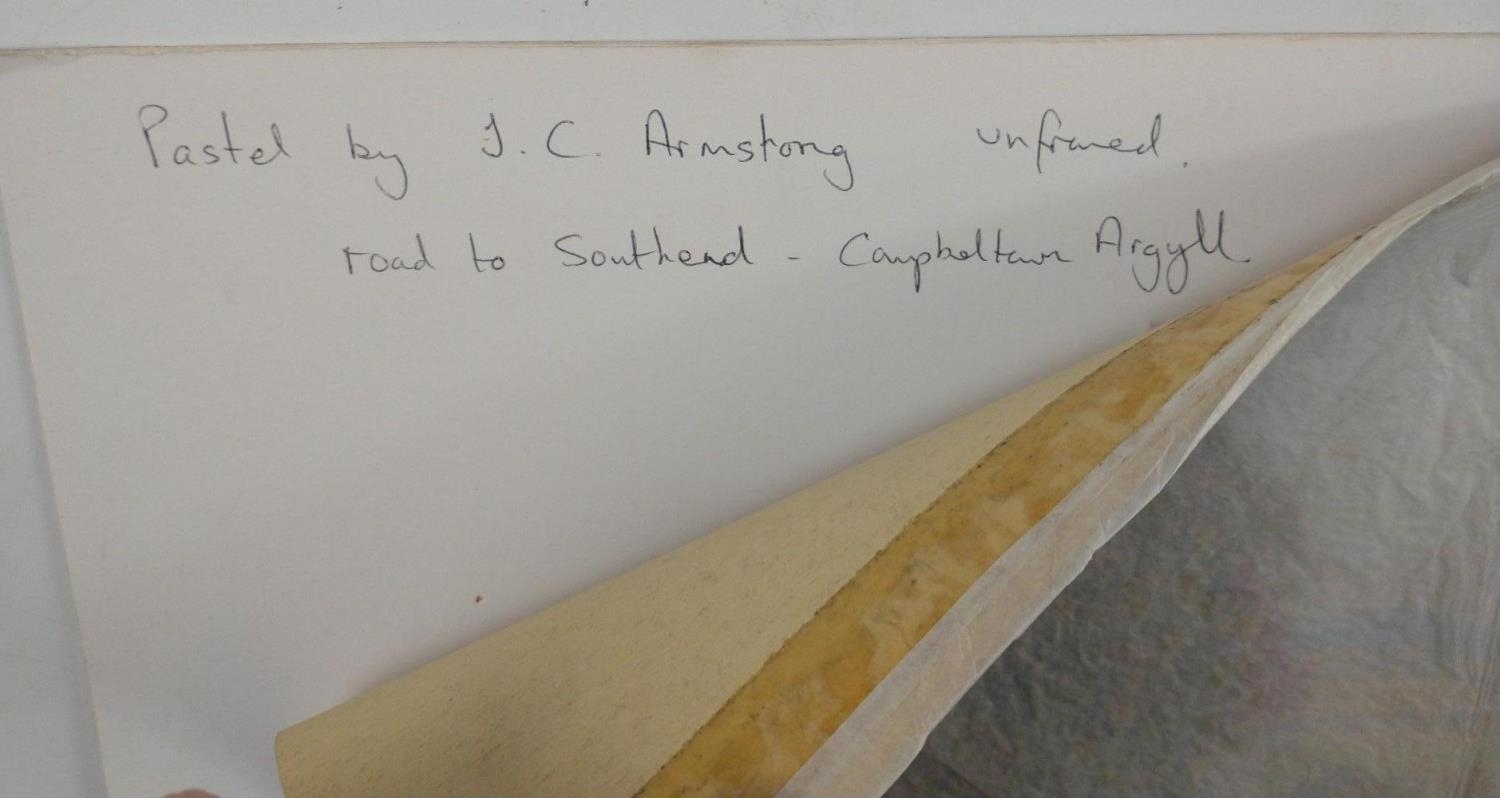 Pastel by J. C. Armstrong unframed.
road to Southend - Campbeltown Argyll.